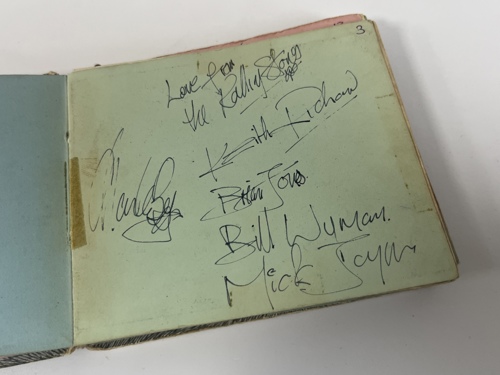 3
Love from
the Rolling Stones
xxx
Keith Richard
Brian Jones
Bill Wyman.
Mick Jagger